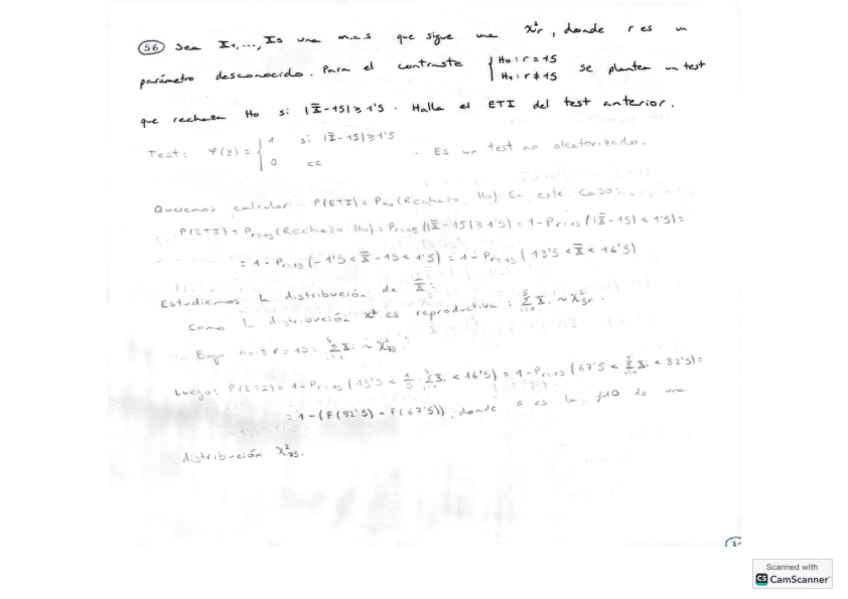 56 Sea X₁,...,X₅ una m.a.s que sigue una χ²ᵣ, donde r es un
parámetro desconocido. Para el contraste { H₀: r = 15 H₁: r ≠ 15 se plantea un test
que rechaza H₀ si |X̄-15| ≥ 1'5. Halla el ETI del test anterior.
Test: φ(x) = { 1 si |X̄-15| ≥ 1'5 0 cc . Es un test no aleatorizado.
Queremos calcular P(ETI) = P_H₀(Rechazo H₀). En este caso:
P(ETI) = Pᵣ₌₁₅(Rechazo H₀) = Pᵣ₌₁₅(|X̄-15| ≥ 1'5) = 1 - Pᵣ₌₁₅(|X̄-15| < 1'5) =
= 1 - Pᵣ₌₁₅(-1'5 < X̄-15 < 1'5) = 1 - Pᵣ₌₁₅(13'5 < X̄ < 16'5)
Estudiemos la distribución de X̄:
Como la distribución χ² es reproductiva: Σᵢ₌₁⁵ Xᵢ ~ χ²₅ᵣ.
Bajo H₀: r = 15: Σᵢ₌₁⁵ Xᵢ ~ χ²₇₅
Luego: P(ETI) = 1 - Pᵣ₌₁₅(13'5 < 1/5 Σᵢ₌₁⁵ Xᵢ < 16'5) = 1 - Pᵣ₌₁₅(67'5 < Σᵢ₌₁⁵ Xᵢ < 82'5) =
= 1 - (F(82'5) - F(67'5)), donde F es la fdD de una
distribución χ²₇₅.
Scanned with
CS CamScanner